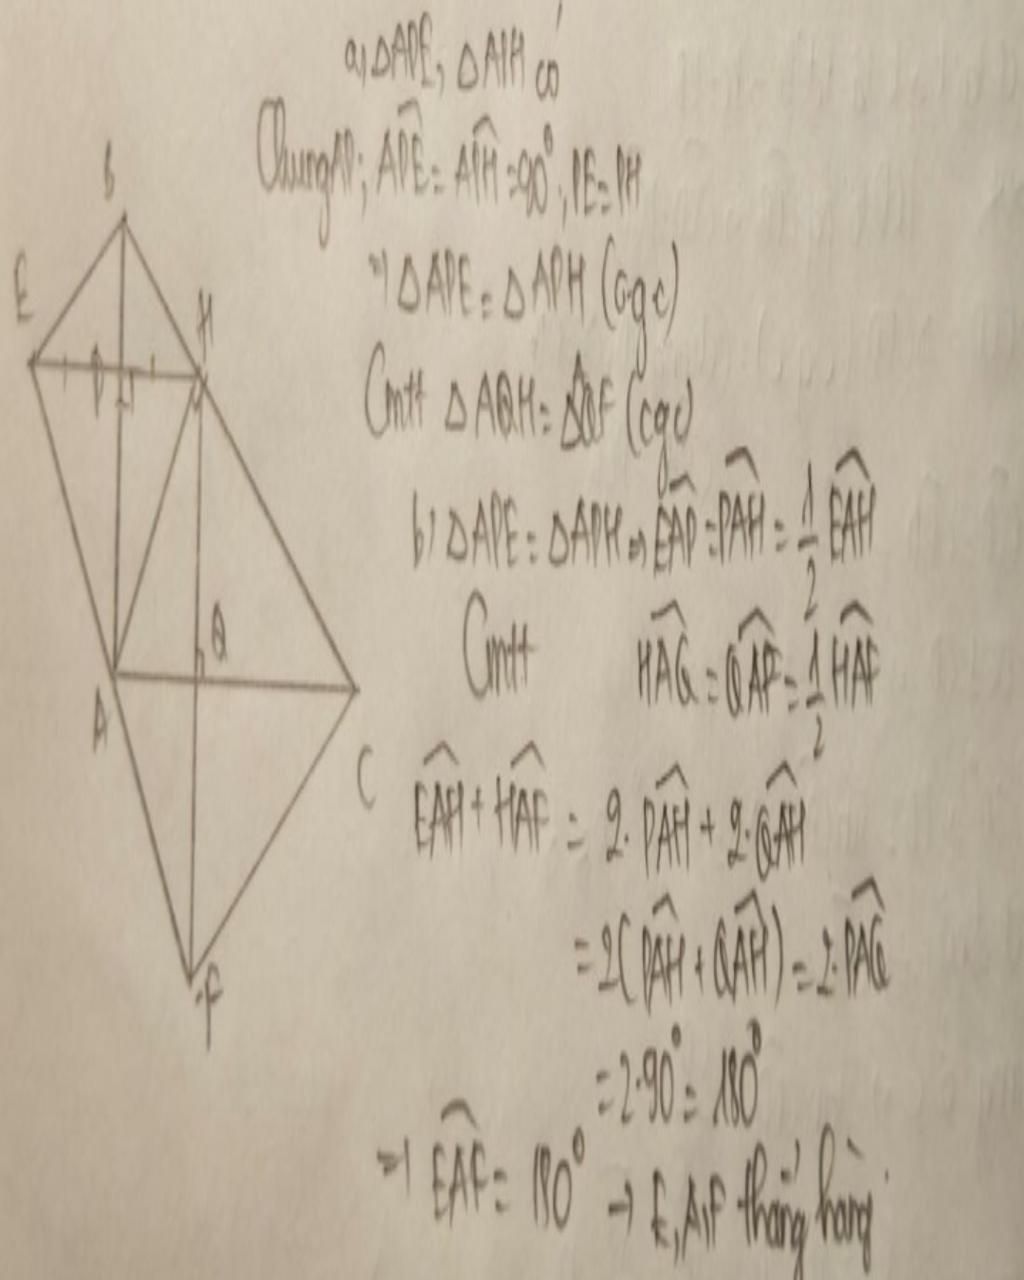 a, ΔAPE, ΔAPH có
Chung AP; APE = APH = 90°, PE = PH
=> ΔAPE = ΔAPH (cgc)
Cmtt ΔAQH = ΔAQF (cgc)
b, ΔAPE = ΔAPH => EAP = PAH = 1/2 EAH
Cmtt HAQ = QAF = 1/2 HAF
EAH + HAF = 2. PAH + 2. QAH
= 2(PAH + QAH) = 2. PAQ
= 2.90° = 180°
=> EAF = 180° → E, A, F thẳng hàng
B
E
H
P
Q
A
C
F